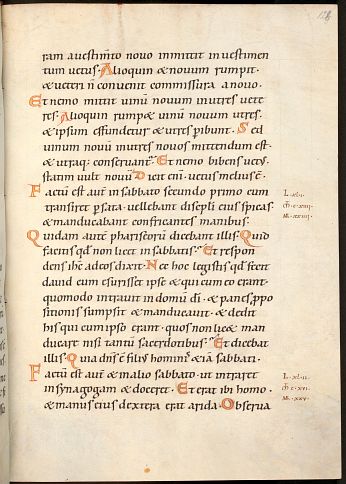 ram a vestim̄to novo inmittit in vestimen
tum vetus. Alioquin & novum rumpit.
& veteri n̄ convenit commissura a novo.
Et nemo mittit vinū novum in utres vete
res. Alioquin rump& vinū novum utres.
& ipsum effundetur & utres peribunt. Sed
vinum novū in utres novos mittendum est.
& utraq; conservant~. Et nemo bibens vet;
statim vult novū. Dicit eni. vetus melius ē.
Factū est aut̄ in sabbato secundo primo cum
transiret per sata. vellebant discipli eius spicas
& manducabant confricantes manibus.
Quidam autē phariseorū dicebant illis. Quid
facitis qd̄ non licet in sabbatis. Et respon
dens ihc̄ ad eos dixit. Nec hoc legistis qd̄ fecit
david cum esurisset ipse & qui cum eo erant.
quomodo intravit in domū dī. & panes ppo
sitionis sumpsit & manducavit. & dedit
his qui cum ipso erant. quos non lic& man
ducare nisi tantū sacerdotibus. Et dicebat
illis. Quia dn̄s ē filius hominis &iā sabbati.
Factū est aut̄ & in alio sabbato. ut intraret
in synagogam & doceret. Et erat ibi homo.
& manus eius dextera erat arida. Observa